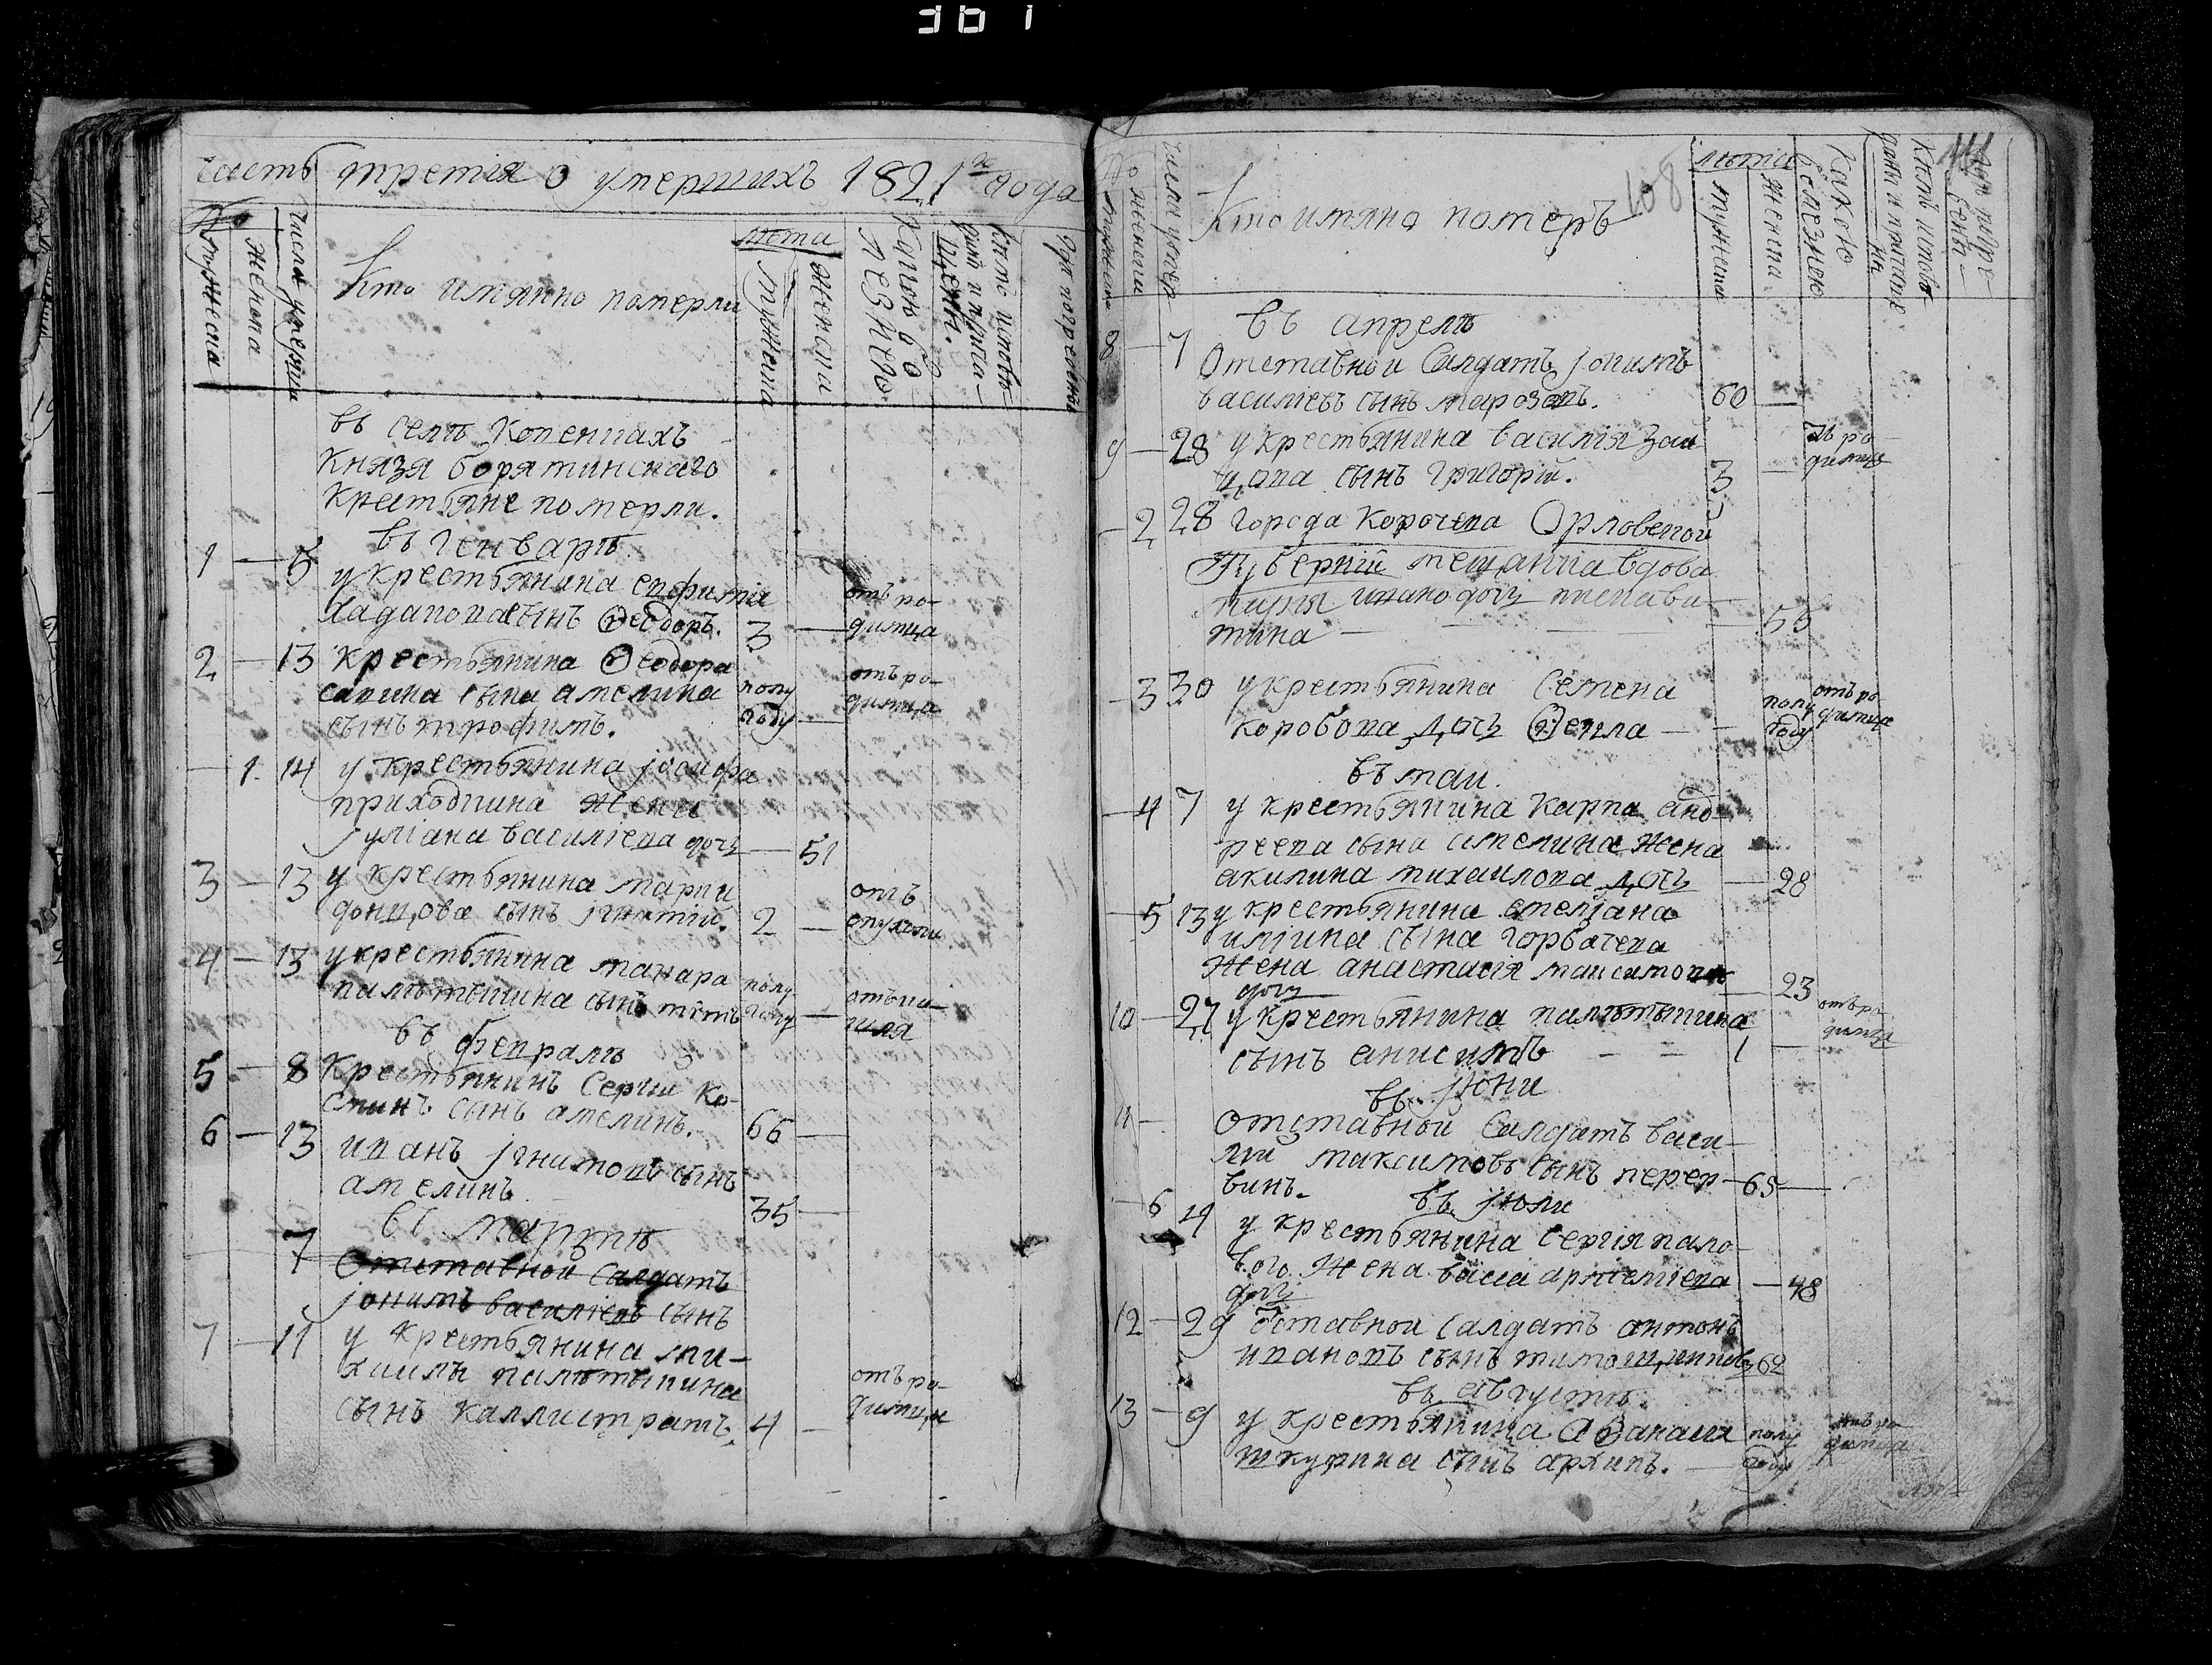 361
часть третія о умершихъ 1821го года
No
мужеска
женска
числа умерши
Кто имянно померли
лета
мужеска
женска
Какою бо
лезнею
кемъ исповѣ
даны и приоб
щены
где погребены
въ селѣ Копенкахъ
Князя борятинскаго
крестьяне померли.
въ генварѣ
1 — 5 у крестьянина ефимія
хадакова сынъ Ѳеодоръ. 3 — отъ ро-
димца
2 — 13 крестьянина Ѳеодора
савина сына амелина полу отъ ро-
сынъ трофимъ. году — димца
— 1. 14 у крестьянина јосифа
приходкина жена
јуліана василіева дочь — 51
3 — 13 у крестьянина марки отъ
донцова сынъ јгнатій. 2 — опухоли
4 — 13 у крестьянина макара полу
палѣтыкина сынъ году — отъ ка-
шля
въ февралѣ
5 — 8 Крестьянинъ Сергіи Ко-
сынъ амелинъ. 66 —
6 — 13 иванъ јгнатовъ сынъ
амелинъ 35 —
въ мартѣ
7 Отставной салдатъ
василіевъ сынъ
7 — 11 у крестьянина ми-
хаилы палѣтыкина отъ ро-
сынъ каллистратъ. 4 — димца
No
мужеска
женски
числа умер
Кто имяна померъ
108
111
лѣта
мужески
женска
Какою
болезнею
кемъ исповѣ
даны и приоще
ны
где погре-
бены
въ апрелѣ
8 — 7 Отставнои Салдатъ
василіевъ сынъ марозовъ. 60 —
9 — 28 у крестьянина василія Заи
цова сынъ григорій. 3 — отъ ро-
димца
— 2 28 города Корочева Орловской
губерніи мещанка вдова
дочь
— 55
— 3 30 у крестьянина Семена отъ ро
коробова дочь Ѳекла — — полу году димца
въ маи.
— 4 7 у крестьянина карпа анд-
реева сына амелина жена
акилина михаилова дочь — 28
— 5 13 у крестьянина емеліана
иліина сына горбачева
жена анастасія максимова
дочь — 23
10 — 27 у крестьянина палѣтыкина отъ ро
сынъ анисимъ — — 1 — димца
въ јюни
11 — Отставной Салдатъ васи-
лій максимовъ сынъ
— 65 —
въ јюли
— 6 19 у крестьянина сергія
жена васса артеміева — 48
дочь
12 — 29 Оставнои салдатъ антонъ
ивановъ сынъ 62
въ августѣ.
13 — 9 у крестьянина Аѳанасія полу отъ ро
шкурина сынъ архипъ. — году димца